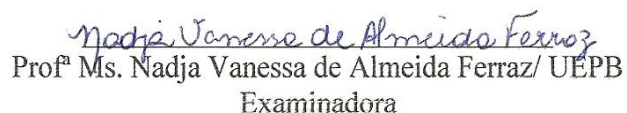 Nadja Vanessa de Almeida Ferraz
Profª Ms. Nadja Vanessa de Almeida Ferraz/ UEPB
Examinadora